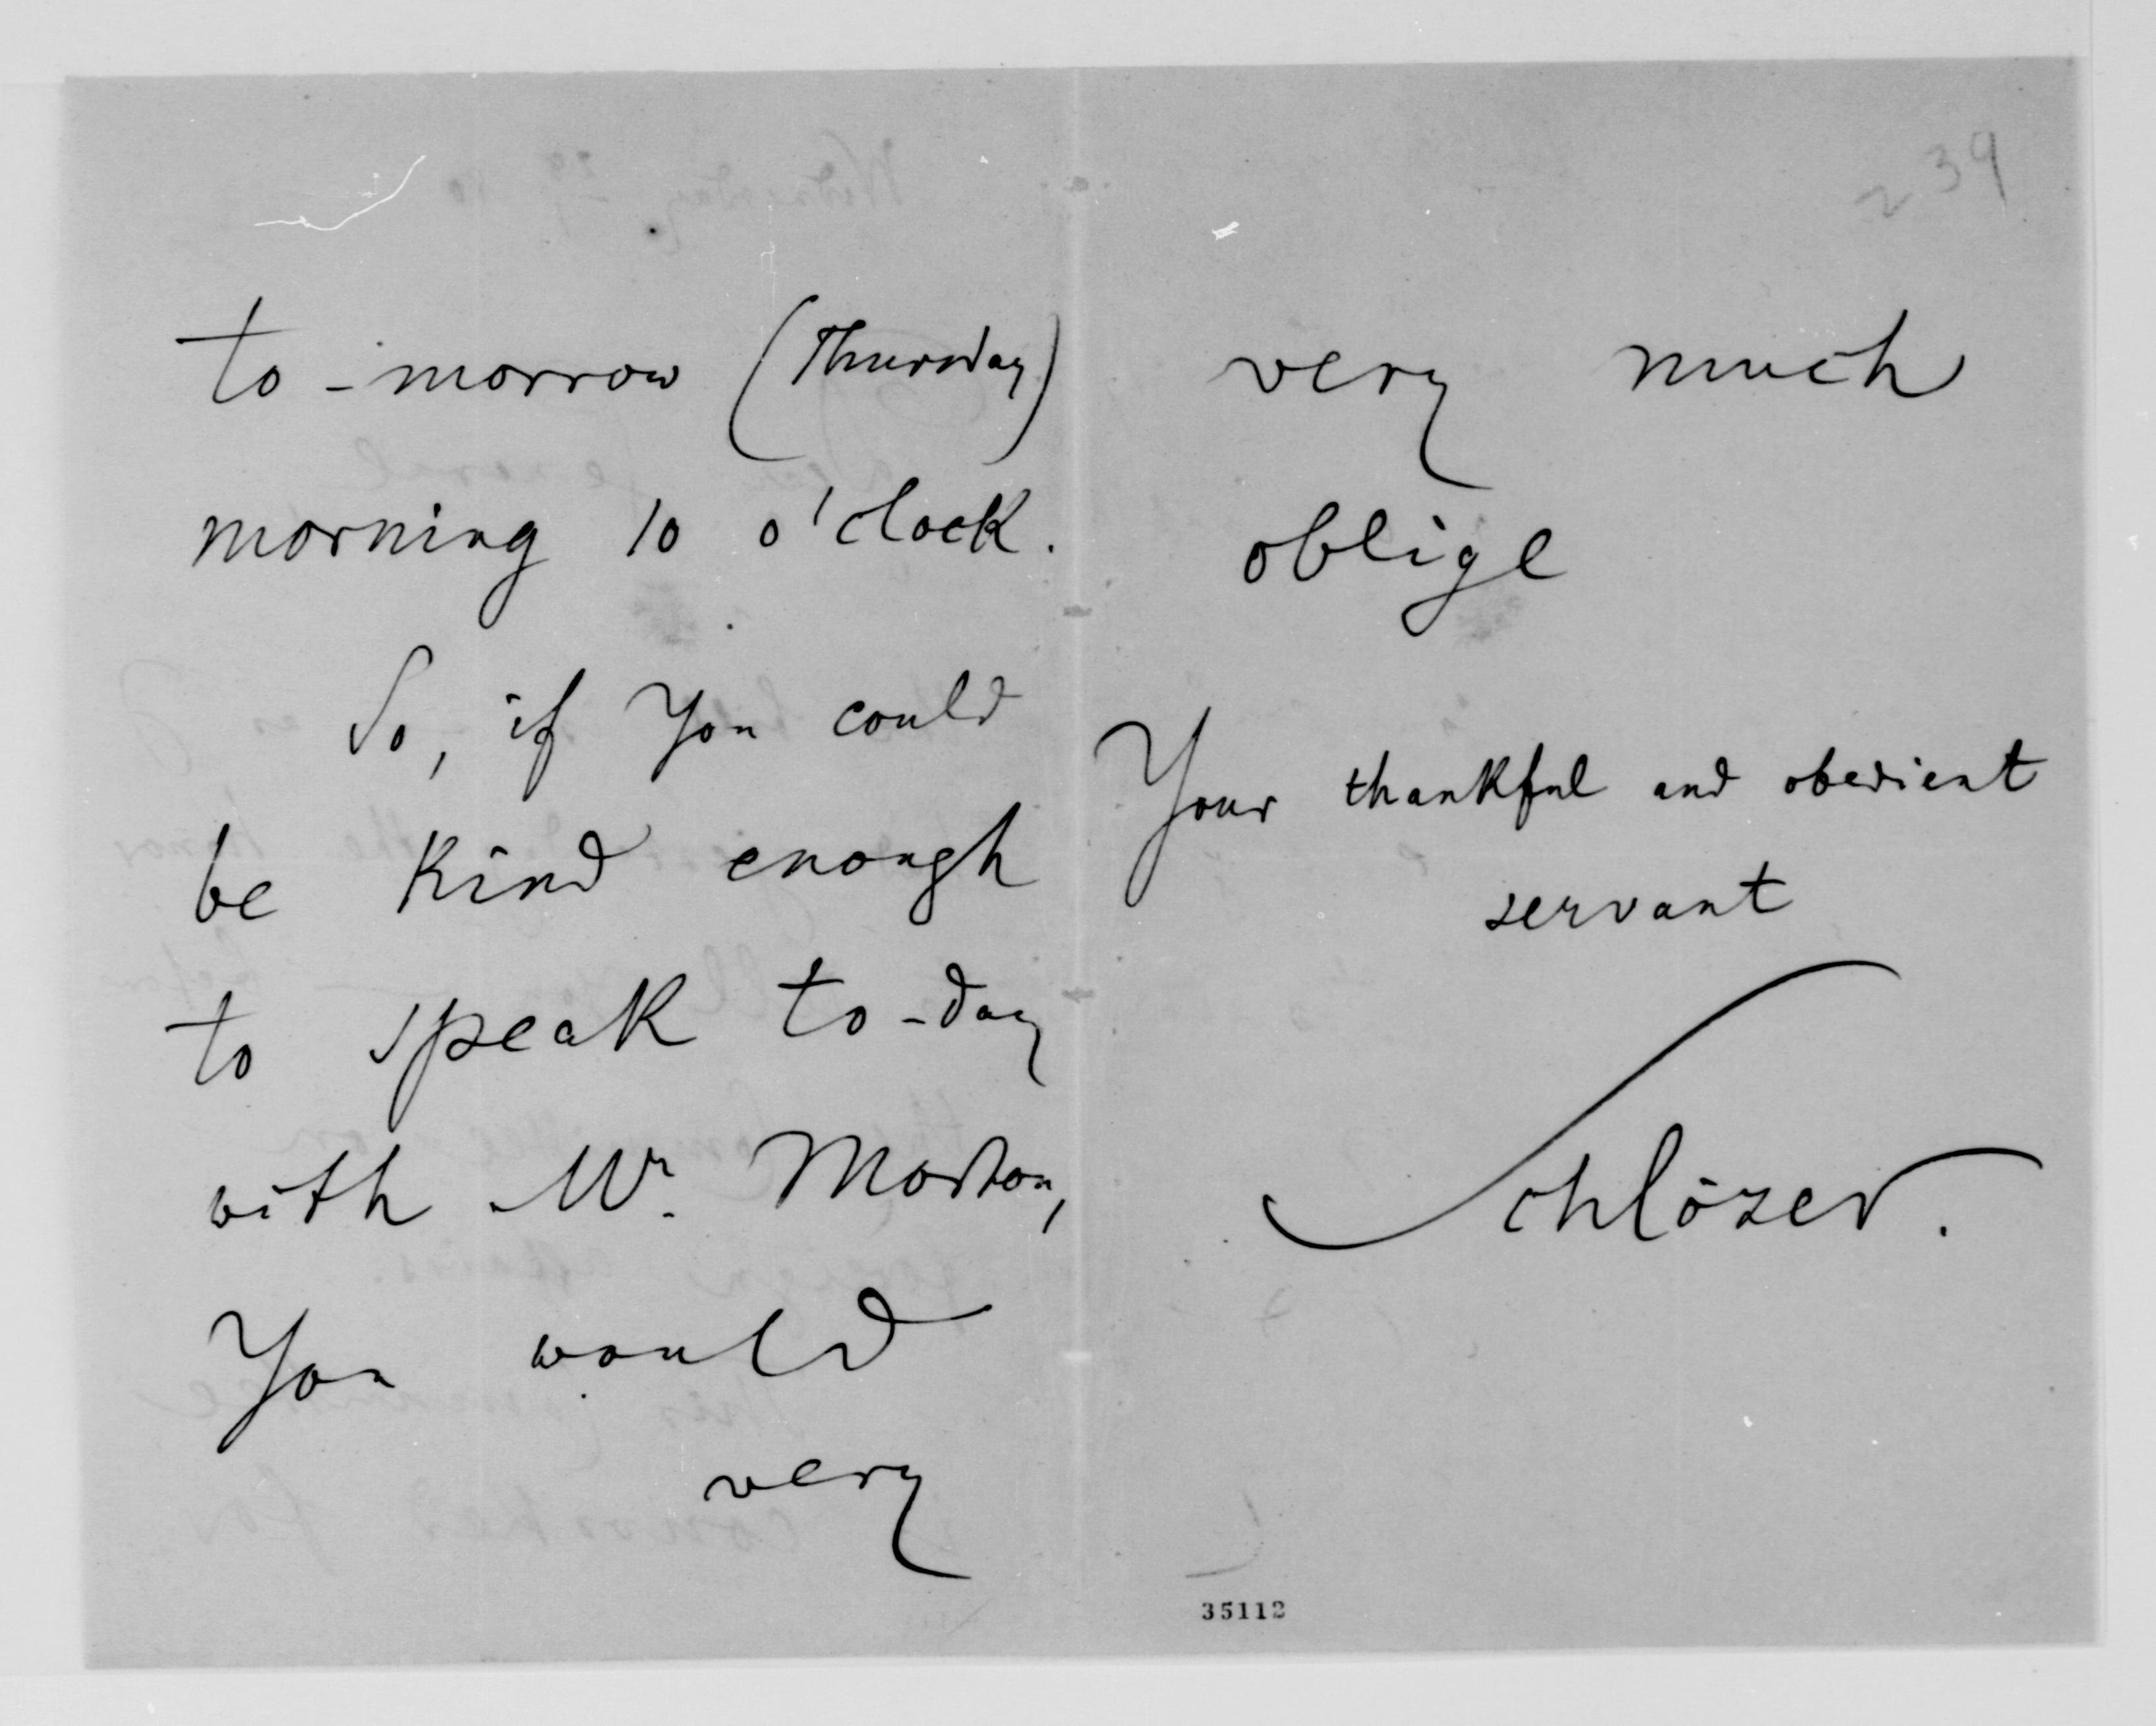 to-morrow (Thursday)
morning 10 o'clock.
So, if You could
be Kind enough
to speak to-day
with Mr. Morton,
You would
very
239
very much
oblige
Your thankful and obedient
servant
Schlözer.
35112